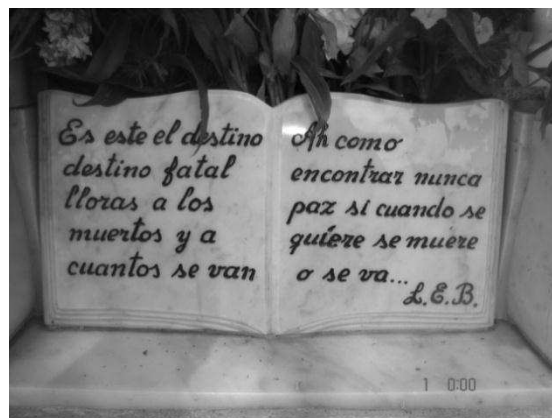 Es este el destino
destino fatal
lloras a los
muertos y a
cuantos se van
Ah como
encontrar nunca
paz si cuando se
quiere se muere
o se va...
L.E.B.
1 0:00